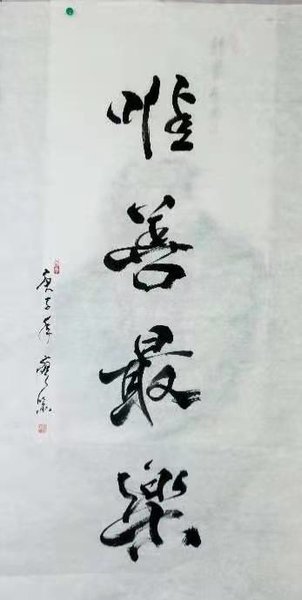 唯善最樂
庚子年